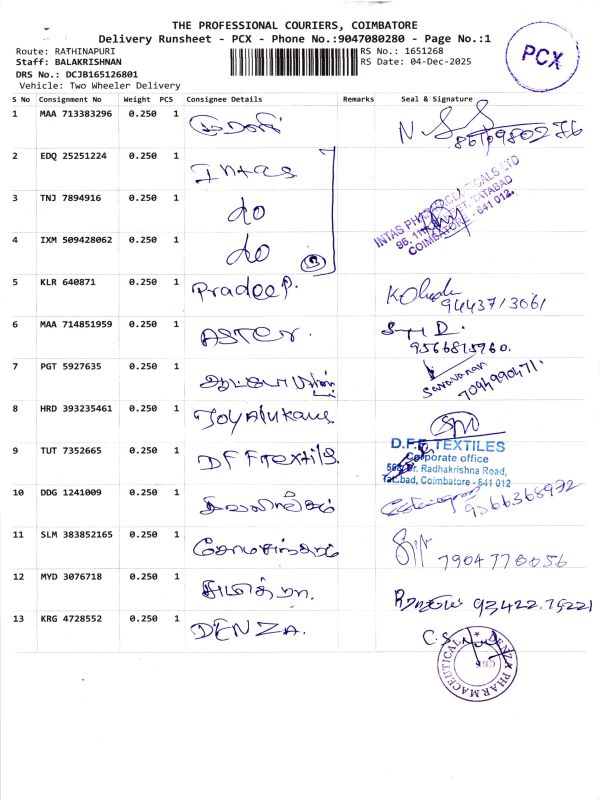 THE PROFESSIONAL COURIERS, COIMBATORE
Delivery Runsheet - PCX - Phone No.:9047080280 - Page No.:1
Route: RATHINAPURI
RS No.: 1651268
PCX
Staff: BALAKRISHNAN
RS Date: 04-Dec-2025
DRS No.: DCJB165126801
Vehicle: Two Wheeler Delivery
S No Consignment No Weight PCS Consignee Details Remarks Seal & Signature
1 MAA 713383296 0.250 1
2 EDQ 25251224 0.250 1 Intas
3 TNJ 7894916 0.250 1 do
INTAS PHARMACEUTICALS LTD
TATABAD
COIMBATORE - 641 012.
4 IXM 509428062 0.250 1 do 3
5 KLR 640871 0.250 1 Pradeep. 9443713061
6 MAA 714851959 0.250 1 ASTER. 9566815760.
7 PGT 5927635 0.250 1 Saravanan 7094990471.
8 HRD 393235461 0.250 1 Joyalukkas
9 TUT 7352665 0.250 1 DFF Textils.
D.F.F. TEXTILES
Corporate office
Dr. Radhakrishna Road,
Tatabad, Coimbatore - 641 012
10 DDG 1241009 0.250 1 9566368972
11 SLM 383852165 0.250 1 7904770056
12 MYD 3076718 0.250 1 93422.75221
13 KRG 4728552 0.250 1 DENZA. C.S.
DENZA PHARMACEUTICALS
CBE